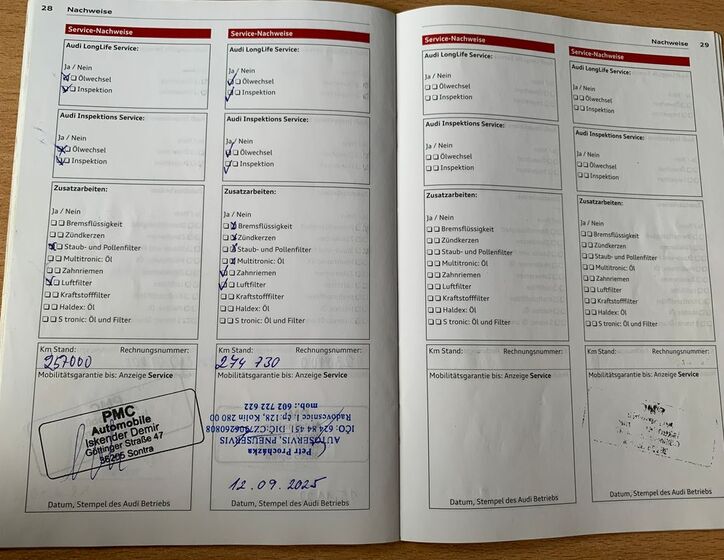 28 Nachweise
Service-Nachweise
Audi LongLife Service:
Ja / Nein
Ölwechsel
Inspektion
Audi Inspektions Service:
Ja / Nein
Ölwechsel
Inspektion
Zusatzarbeiten:
Ja / Nein
Bremsflüssigkeit
Zündkerzen
Staub- und Pollenfilter
Multitronic: Öl
Zahnriemen
Luftfilter
Kraftstofffilter
Haldex: Öl
S tronic: Öl und Filter
Km Stand: Rechnungsnummer:
257000
Mobilitätsgarantie bis: Anzeige Service
PMC
Automobile
Iskender Demir
Göttinger Straße 47
36205 Sontra
Datum, Stempel des Audi Betriebs
Service-Nachweise
Audi LongLife Service:
Ja / Nein
Ölwechsel
Inspektion
Audi Inspektions Service:
Ja / Nein
Ölwechsel
Inspektion
Zusatzarbeiten:
Ja / Nein
Bremsflüssigkeit
Zündkerzen
Staub- und Pollenfilter
Multitronic: Öl
Zahnriemen
Luftfilter
Kraftstofffilter
Haldex: Öl
S tronic: Öl und Filter
Km Stand: Rechnungsnummer:
274 730
Mobilitätsgarantie bis: Anzeige Service
Petr Procházka
AUTOSERVIS, PNEUSERVIS
IČO: 624 84 451 DIČ:
Radovesnice I, čp. 128, Kolín 280 00
mob.: 602 722 622
12.09.2025
Datum, Stempel des Audi Betriebs
Nachweise 29
Service-Nachweise
Audi LongLife Service:
Ja / Nein
Ölwechsel
Inspektion
Audi Inspektions Service:
Ja / Nein
Ölwechsel
Inspektion
Zusatzarbeiten:
Ja / Nein
Bremsflüssigkeit
Zündkerzen
Staub- und Pollenfilter
Multitronic: Öl
Zahnriemen
Luftfilter
Kraftstofffilter
Haldex: Öl
S tronic: Öl und Filter
Km Stand: Rechnungsnummer:
Mobilitätsgarantie bis: Anzeige Service
Datum, Stempel des Audi Betriebs
Service-Nachweise
Audi LongLife Service:
Ja / Nein
Ölwechsel
Inspektion
Audi Inspektions Service:
Ja / Nein
Ölwechsel
Inspektion
Zusatzarbeiten:
Ja / Nein
Bremsflüssigkeit
Zündkerzen
Staub- und Pollenfilter
Multitronic: Öl
Zahnriemen
Luftfilter
Kraftstofffilter
Haldex: Öl
S tronic: Öl und Filter
Km Stand: Rechnungsnummer:
Mobilitätsgarantie bis: Anzeige Service
Datum, Stempel des Audi Betriebs